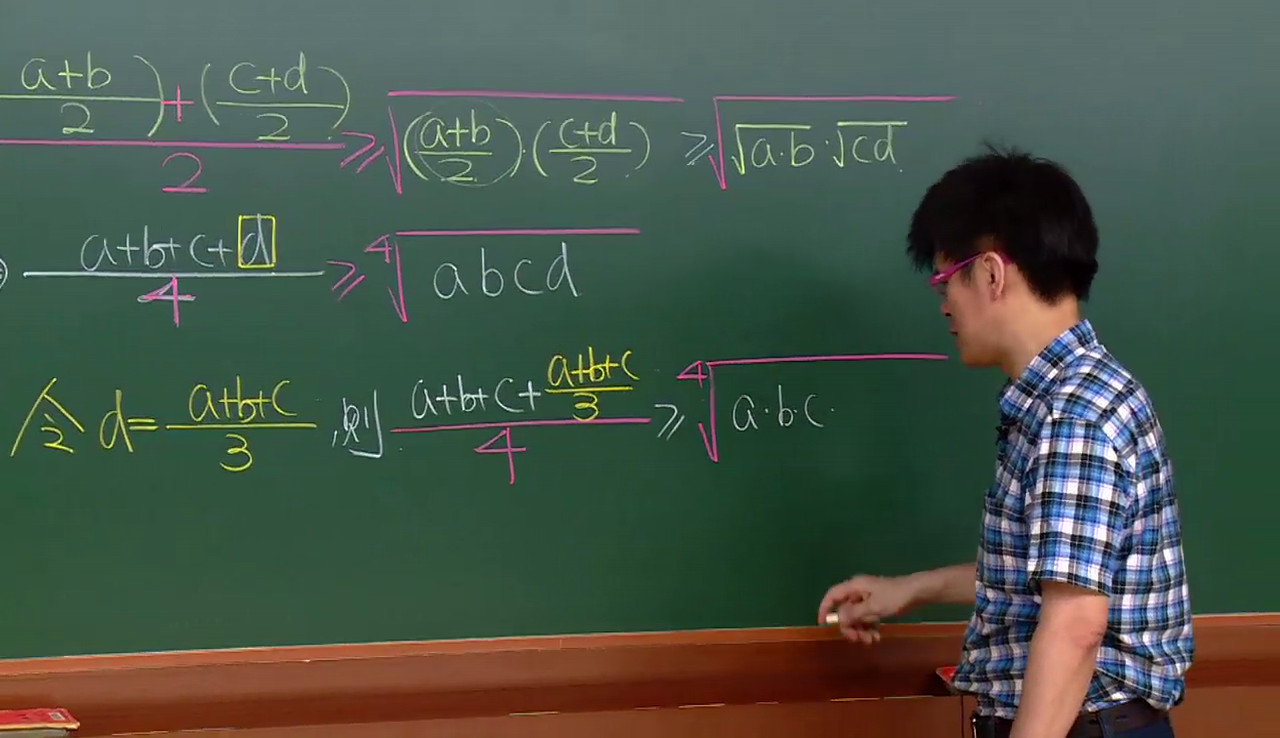 (a+b)/2)+((c+d)/2) / 2 ≥ √((a+b)/2)·((c+d)/2) ≥ √(√a·b·√cd)
(a+b+c+d)/4 ≥ ⁴√abcd
令 d=(a+b+c)/3 ,則 (a+b+c+(a+b+c)/3)/4 ≥ ⁴√a·b·c·